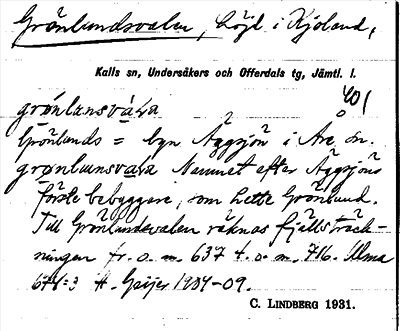 Grönlundsvalen, höjd. i Kjoland,
Kalls sn, Undersåkers och Offerdals tg, Jämtl. l.
401
grønlansvala
Grönlunds = byn Äggsjön i Åre sn.
grønlunsvala Namnet efter Äggsjöns
förste bebyggare, som hette Grönlund.
Till Grönlundsvalen räknas fjällsträck-
ningen fr. o. m. 637 t. o. m. 716. Ulma
671:3 H. Geijer 1904-09.
C. LINDBERG 1931.